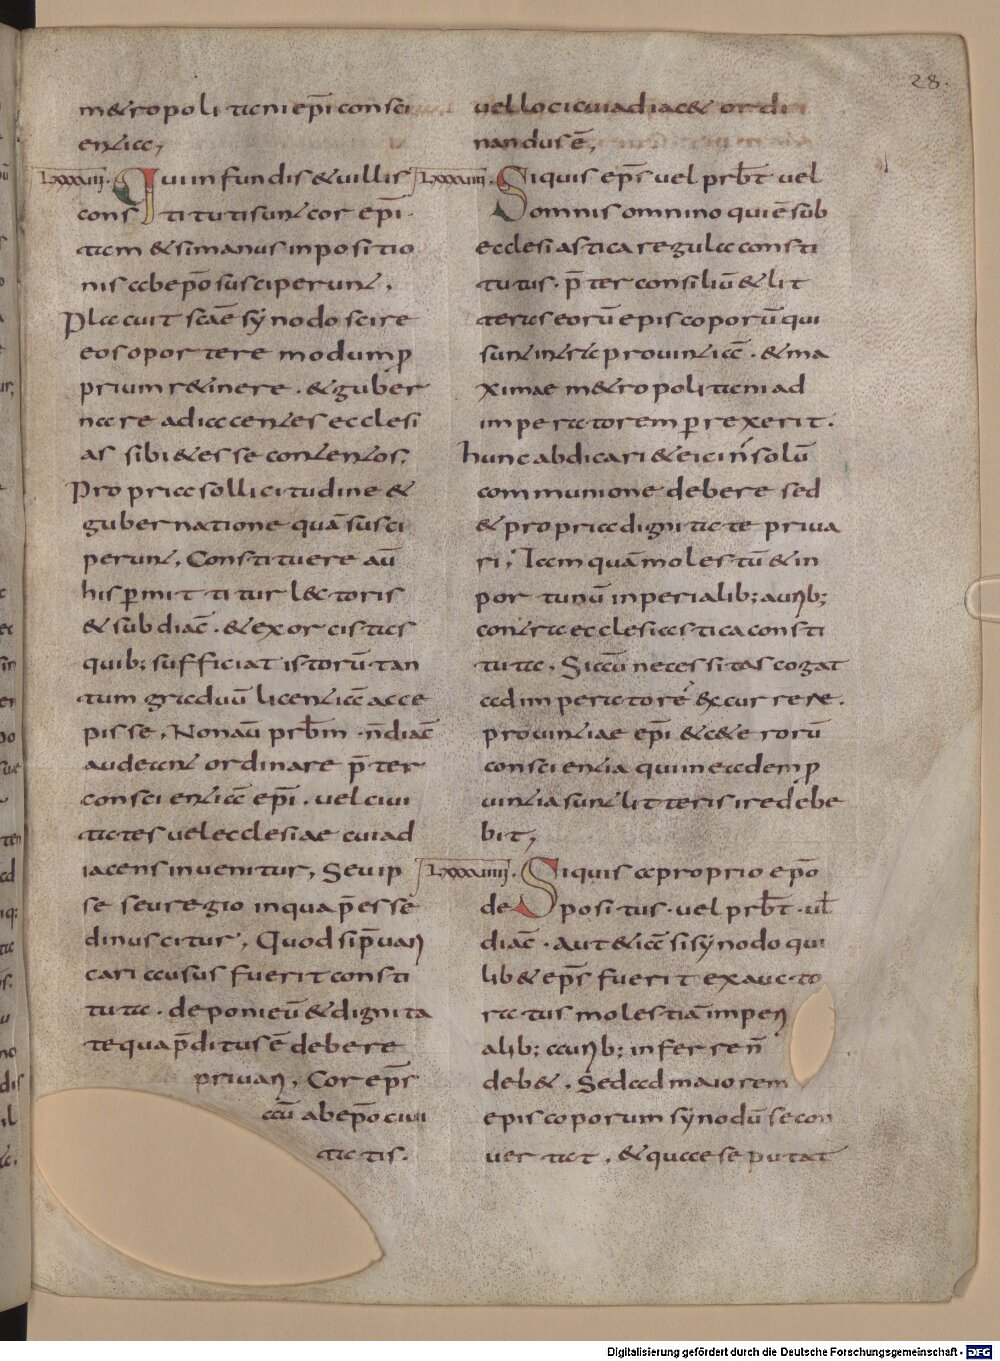 28.
metropolitani ep̄i consci
entiae;
LXXXIII. Qui in fundis & uillis
constituti sunt cor ep̄i·
tam & si manus inpositio
nis ab ep̄o susciperunt,
Placuit sc̄ae synodo scire
eos oportere modum p̄
prium r&inere . & guber
nare adiacentes ecclesi
as sibi & esse contentos;
Propria sollicitudine &
gubernatione quā susci
perunt, Constituere aū
his p̄mittitur lectoris
& subdiac̄ · & exorcistas
quib; sufficiat istorū tan
tum graduū licentiā acce
pisse, Non aū prb̄m · n̄ diac̄
audeant ordinare p̄ter
conscientiā ep̄i . uel ciui
tates uel ecclesiae cui ad
iacens inuenitur, Seu ip
se seu regio in qua p̄esse
dinuscitur, Quod si p̄uari
cari ausus fuerit consti
tuta · deponi eū & dignita
te qua p̄ditus ē debere
priuari, Cor ep̄s
aū ab ep̄o ciui
tatis.
uel loci cui adiac& ordi
nandus ē,
LXXXIIII. Siquis ep̄s uel prb̄t uel
omnis omnino qui ē sub
ecclesiastica regula consti
tutus · p̄ter consiliū & lit
teras eorū episcoporū qui
sunt intra prouintiā . & ma
ximae m&ropolitani ad
imperatorem p̄rexerit.
hunc abdicari & eici n̄ solū
communione debere sed
& propria dignitate priua
ri, Tam quā molestū & in
portunū inperialib; aurib;
contra ecclesiastica consti
tuta, Si aū necessitas cogat
ad imperatorē excurrere.
prouintiae ep̄i & c&erorū
conscientia qui in eadem p̄
uintia sunt litteris ire debe
bit,
LXXXIIIII. Siquis a proprio ep̄o
depositus · uel prb̄t · ul̄
diac̄ · aut &iā si synodo qui
lib& ep̄s fuerit exaucto
ratus molestiā imperi
alib; aurib; inferre n̄
deb& . Sed ad maiorem
episcoporum synodū se con
uertat . & quae se putat
Digitalisierung gefördert durch die Deutsche Forschungsgemeinschaft - DFG